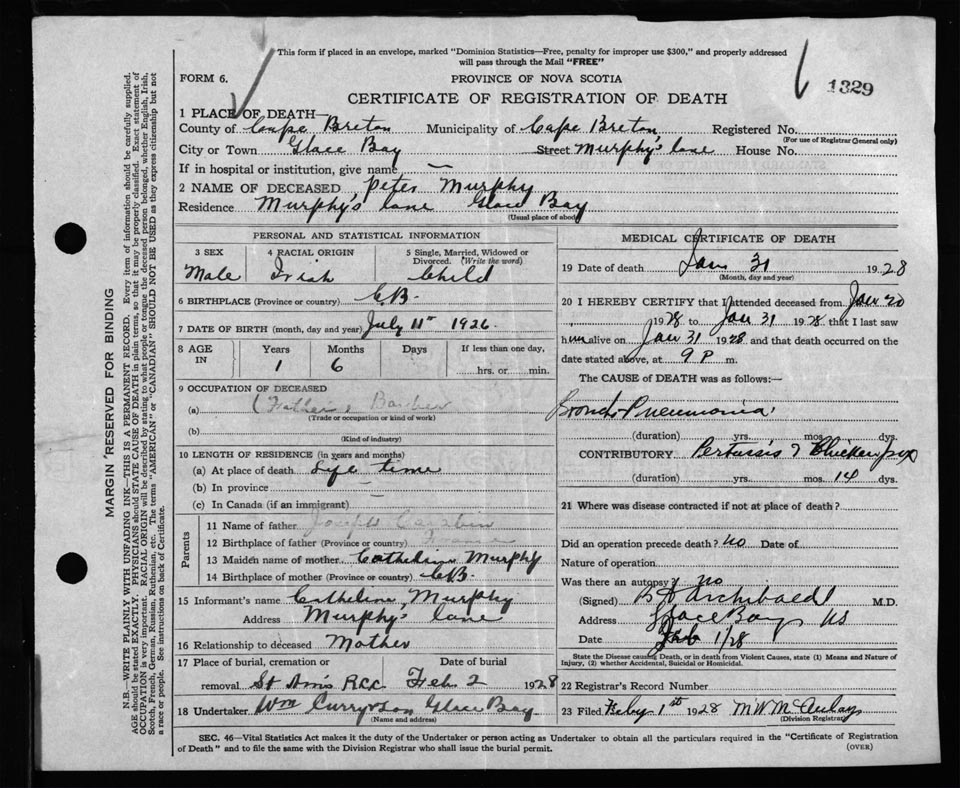 This form if placed in an envelope, marked "Dominion Statistics—Free, penalty for improper use $300," and properly addressed
will pass through the Mail "FREE"
FORM 6.
PROVINCE OF NOVA SCOTIA
1329
CERTIFICATE OF REGISTRATION OF DEATH
1 PLACE OF DEATH—
County of Cape Breton Municipality of Cape Breton Registered No.
(For use of Registrar General only)
City or Town Glace Bay Street Murphy's lane House No.
If in hospital or institution, give name —
2 NAME OF DECEASED Peter Murphy
Residence Murphy's lane Glace Bay
(Usual place of abode)
PERSONAL AND STATISTICAL INFORMATION
3 SEX
Male
4 RACIAL ORIGIN
Irish
5 Single, Married, Widowed or
Divorced. (Write the word)
Child
6 BIRTHPLACE (Province or country) C.B.
7 DATE OF BIRTH (month, day and year) July 11th 1926
8 AGE IN
Years Months Days If less than one day,
1 6 hrs. or min.
9 OCCUPATION OF DECEASED
(a) (Father's
(Trade or occupation or kind of work)
(b)
(Kind of industry)
10 LENGTH OF RESIDENCE (in years and months)
(a) At place of death Life time
(b) In province —
(c) In Canada (if an immigrant) —
Parents
11 Name of father Joseph
12 Birthplace of father (Province or country) France
13 Maiden name of mother Catheline Murphy
14 Birthplace of mother (Province or country) C.B.
15 Informant's name Catheline Murphy
Address Murphy's lane
16 Relationship to deceased Mother
17 Place of burial, cremation or Date of burial
removal St Ann's R.C.C. Feb 2 1928
18 Undertaker Wm Curry & Son Glace Bay
(Name and address)
MEDICAL CERTIFICATE OF DEATH
19 Date of death Jan 31 1928
(Month, day and year)
20 I HEREBY CERTIFY that I attended deceased from Jan 20
1928 to Jan 31 1928 that I last saw
him alive on Jan 31 1928 and that death occurred on the
date stated above, at 9 P m.
The CAUSE OF DEATH was as follows:—
Broncho Pneumonia
(duration) yrs. mos. dys.
CONTRIBUTORY Pertussis & Chicken pox
(duration) yrs. mos. 14 dys.
21 Where was disease contracted if not at place of death?
Did an operation precede death? no Date of
Nature of operation
Was there an autopsy? no
(Signed) Archibald M.D.
Address Glace Bay NS
Date Feb 1/28
State the Disease causing Death, or in death from Violent Causes, state (1) Means and Nature of
Injury, (2) whether Accidental, Suicidal or Homicidal.
22 Registrar's Record Number
23 Filed Feby 1st 1928 M.W. McAulay
(Division Registrar)
SEC. 46—Vital Statistics Act makes it the duty of the Undertaker or person acting as Undertaker to obtain all the particulars required in the "Certificate of Registration
of Death" and to file the same with the Division Registrar who shall issue the burial permit.
(OVER)
MARGIN RESERVED FOR BINDING
N.B.—WRITE PLAINLY WITH UNFADING INK—THIS IS A PERMANENT RECORD. Every item of information should be carefully supplied.
AGE should be stated EXACTLY. PHYSICIANS should STATE CAUSE OF DEATH in plain terms, so that it may be properly classified. Exact statement of
OCCUPATION is very important. RACIAL ORIGIN will be described by stating to what people or tongue the deceased person belonged, whether English, Irish,
Scotch, French, German, Russian, Ruthenian, etc. The terms "AMERICAN" or "CANADIAN" SHOULD NOT BE USED as they express citizenship but not
a race or people. See instructions on back of Certificate.